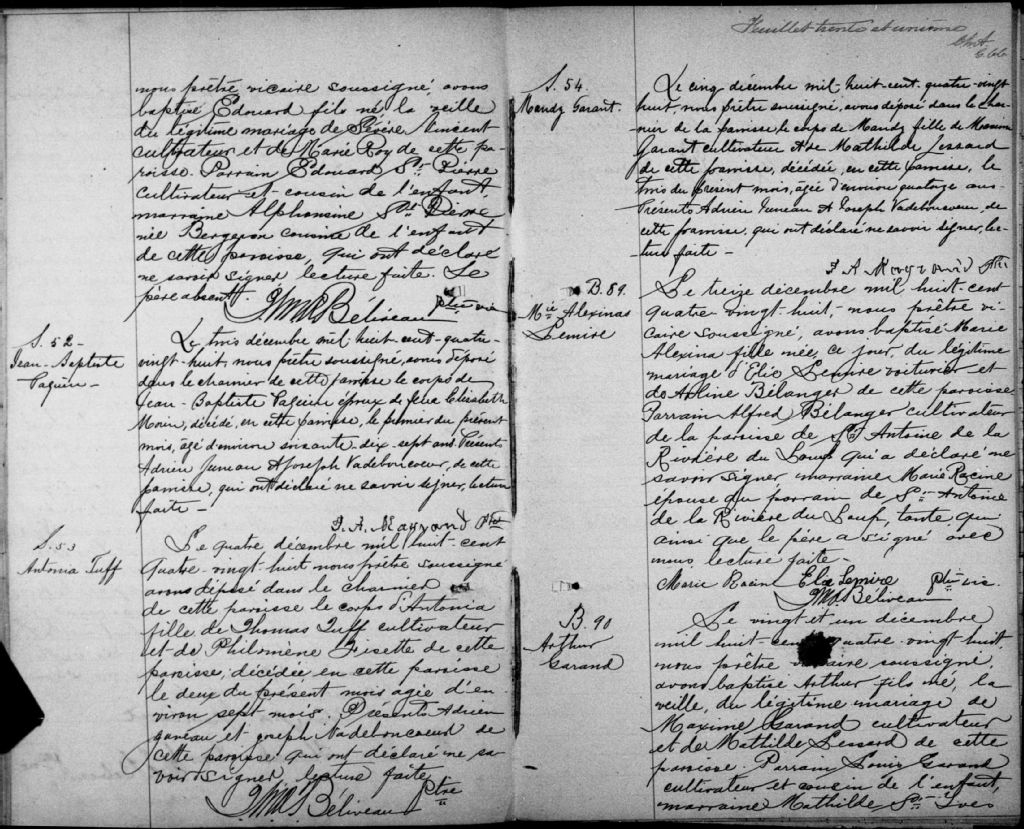 nous prêtre vicaire soussigné, avons
baptisé Edouard fils né la veille
du légitime mariage de Sévère Vincent
cultivateur et de Marie Roy de cette pa-
roisse. Parrain Edouard St. Pierre
cultivateur et cousin de l'enfant,
marraine Alphonsine St. Pierre
née Bergeron cousine de l'enfant
de cette paroisse, qui ont déclaré
ne savoir signer, lecture faite. Le
père absent.
Béliveau ptre vic
S. 52 -
Jean-Baptiste
Paquin -
Le trois décembre mil huit-cent-quatre-
vingt-huit, nous prêtre soussigné, avons déposé
dans le charnier de cette paroisse le corps de
Jean-Baptiste Paquin époux de feue Elisabeth
décédé, en cette paroisse, le premier du présent
mois, âgé d'environ soixante-dix-sept ans. Présents
Adrien Juneau & Joseph Vadeboncoeur, de cette
paroisse, qui ont déclaré ne savoir signer, lecture
faite -
J. A. Ptre
S. 53
Antonia Tuff
Le quatre décembre mil huit-cent
quatre-vingt-huit nous prêtre soussigné
avons déposé dans le charnier
de cette paroisse le corps d'Antonia
fille de Thomas Tuff cultivateur
et de Philomène Frisette de cette
paroisse, décédée en cette paroisse
le deux du présent mois agée d'en-
viron sept mois. Présents Adrien
Juneau et Joseph Vadeboncoeur de
cette paroisse qui ont déclaré ne sa-
voir signer, lecture faite
Béliveau Ptre
Feuillet trente et unième
S. 54.
Mandy Garant.
Le cinq décembre mil huit-cent-quatre-vingt
huit, nous prêtre soussigné, avons déposé dans le char-
nier de la paroisse le corps de Mandy fille de Maxime
Garant cultivateur & de Mathilde Lessard
de cette paroisse, décédée, en cette paroisse, le
trois du présent mois, âgée d'environ quatorze ans.
Présents Adrien Juneau & Joseph Vadeboncoeur, de
cette paroisse, qui ont déclaré ne savoir signer, lec-
ture faite -
J A Ptre
B. 89.
Mie Alexinas
Lemire
Le treize décembre mil huit cent
quatre vingt-huit, nous prêtre vi-
caire soussigné, avons baptisé Marie
Alexina fille née, ce jour, du légitime
mariage d'Elie Lemire voiturier et
de Arline Bélanger de cette paroisse
Parrain Alfred Bélanger cultivateur
de la paroisse de St Antoine de la
Rivière du Loup qui a déclaré ne
savoir signer, marraine Marie Racine
épouse du parrain de St Antoine
de la Rivière du Loup, tante, qui
ainsi que le père a signé avec
nous lecture faite -
Marie Racin Elie Lemire ptre vic.
Béliveau
B. 90
Arthur
Garand
Le vingt et un décembre
mil huit-cent quatre vingt huit
nous prêtre vicaire soussigné,
avons baptisé Arthur fils né, la
veille, du légitime mariage de
Maxime Garand cultivateur
et de Mathilde Lessard de cette
paroisse. Parrain Louis Garand
cultivateur et cousin de l'enfant,
marraine Mathilde St. Yves